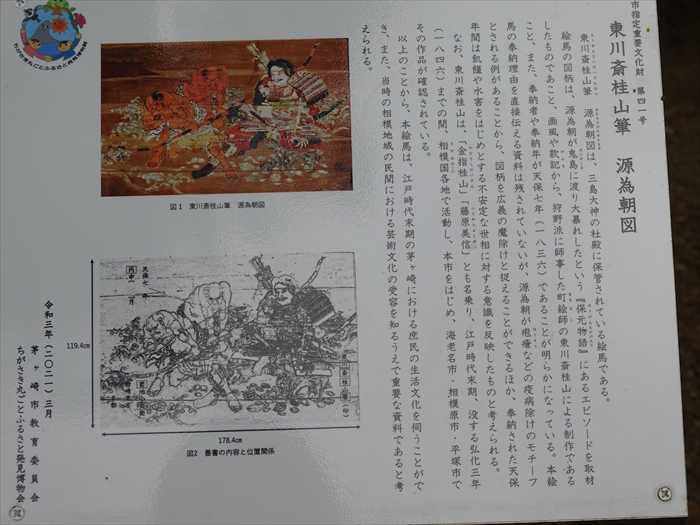 市指定重要文化財 第四一号
東川斎桂山筆 源為朝図
東川斎桂山筆 源為朝図は、三島大神の社殿に保管されている絵馬である。
絵馬の図柄は、源為朝が鬼島に渡り大暴れしたという『保元物語』にあるエピソードを取材
したものであること、画風や款記から、狩野派に師事した町絵師の東川斎桂山による制作である
こと、また、奉納者や奉納年が天保七年（一八三六）であることが明らかになっている。本絵
馬の奉納理由を直接伝える資料は残されていないが、源為朝が疱瘡などの疫病除けのモチーフ
とされる例があることから、図柄を広義の魔除けと捉えることができるほか、奉納された天保
年間は飢饉や水害をはじめとする不安定な世相に対する意識を反映したものと考えられる。
なお、東川斎桂山は、「金指桂山」「藤原美信」とも名乗り、江戸時代末期、没する弘化三年
（一八四六）までの間、相模国各地で活動し、本市をはじめ、海老名市・相模原市・平塚市で
その作品が確認されている。
以上のことから、本絵馬は、江戸時代末期の茅ヶ崎における庶民の生活文化を伺うことがで
き、また、当時の相模地域の民間における芸術文化の受容を知るうえで重要な資料であると考
えられる。
図1 東川斎桂山筆 源為朝図
119.4cm
178.4cm
天保七年
丙申
東川斎桂山筆
図2 墨書の内容と位置関係
令和三年（二〇二一）三月
茅ヶ崎市教育委員会
ちがさき丸ごとふるさと発見博物会